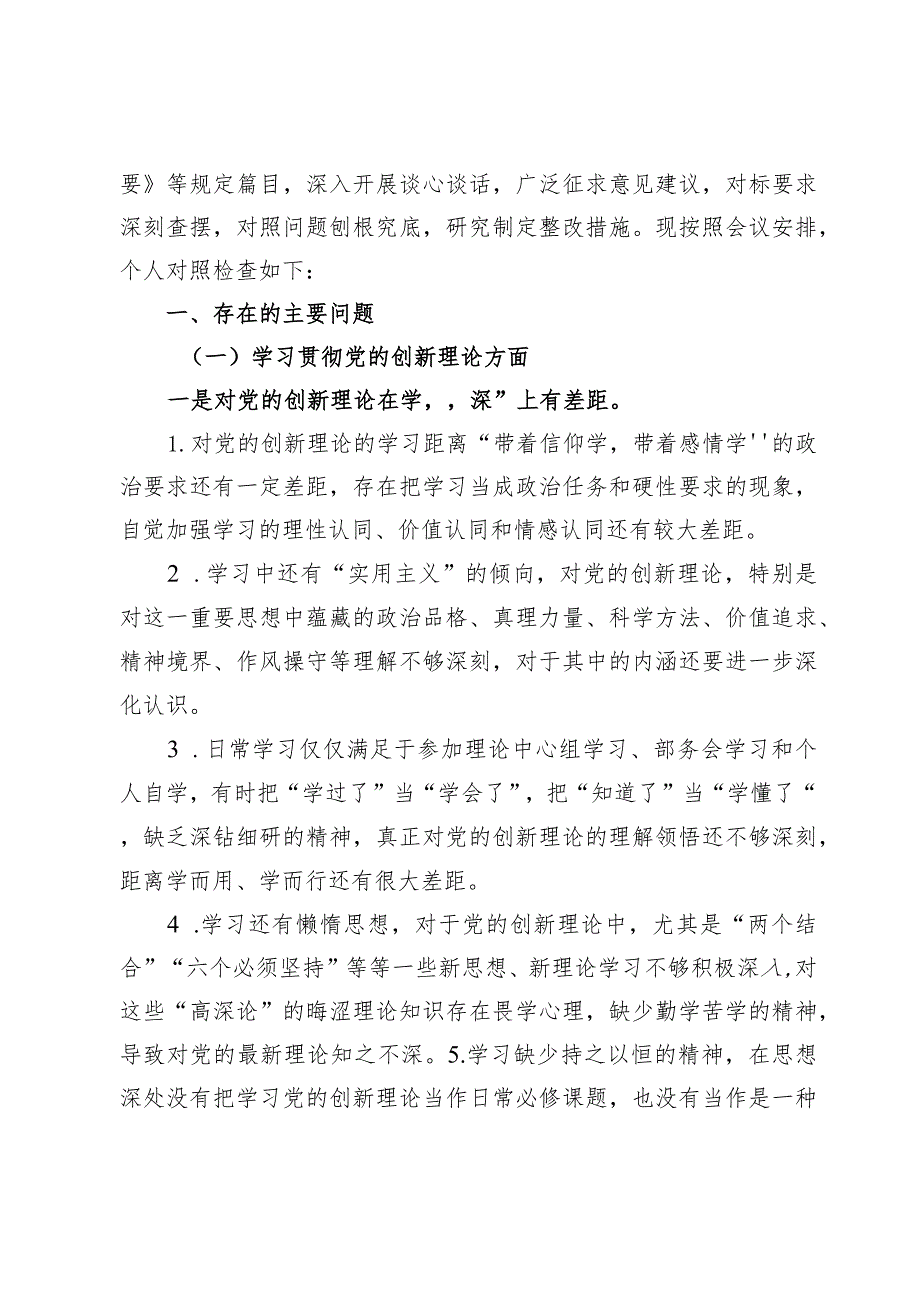 要》等规定篇目，深入开展谈心谈话，广泛征求意见建议，对标要求
深刻查摆，对照问题刨根究底，研究制定整改措施。现按照会议安排，
个人对照检查如下：
一、存在的主要问题
（一）学习贯彻党的创新理论方面
一是对党的创新理论在学，，深”上有差距。
1.对党的创新理论的学习距离“带着信仰学，带着感情学''的政
治要求还有一定差距，存在把学习当成政治任务和硬性要求的现象，
自觉加强学习的理性认同、价值认同和情感认同还有较大差距。
2 .学习中还有“实用主义”的倾向，对党的创新理论，特别是
对这一重要思想中蕴藏的政治品格、真理力量、科学方法、价值追求、
精神境界、作风操守等理解不够深刻，对于其中的内涵还要进一步深
化认识。
3 .日常学习仅仅满足于参加理论中心组学习、部务会学习和个
人自学，有时把“学过了”当“学会了”，把“知道了”当“学懂了“
，缺乏深钻细研的精神，真正对党的创新理论的理解领悟还不够深刻，
距离学而用、学而行还有很大差距。
4 .学习还有懒惰思想，对于党的创新理论中，尤其是“两个结
合”“六个必须坚持”等等一些新思想、新理论学习不够积极深入,对
这些“高深论”的晦涩理论知识存在畏学心理，缺少勤学苦学的精神，
导致对党的最新理论知之不深。5.学习缺少持之以恒的精神，在思想
深处没有把学习党的创新理论当作日常必修课题，也没有当作是一种